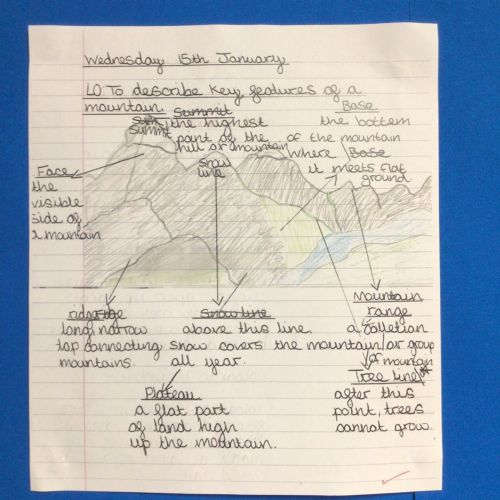 Wednesday 15th January
LO: To describe key features of a
mountain.
Summit
Summit
the highest
point of the
hill or mountain
Base
the bottom
of the mountain
where Base
it meets flat
ground
Face
the
visible
side of
a mountain
Snow
line
ridge
long, narrow
top connecting
mountains.
Snow line
above this line
snow covers the mountain
all year.
Mountain
range
a colletion
or group
of mountain
Plateau
a flat part
of land high
up the mountain.
Tree line
after this
point, trees
cannot grow.